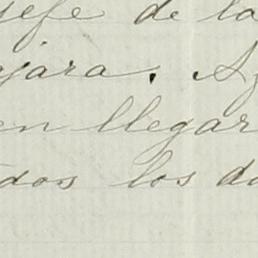 jefe de la
ajara. Ay
en llegar
dos los da